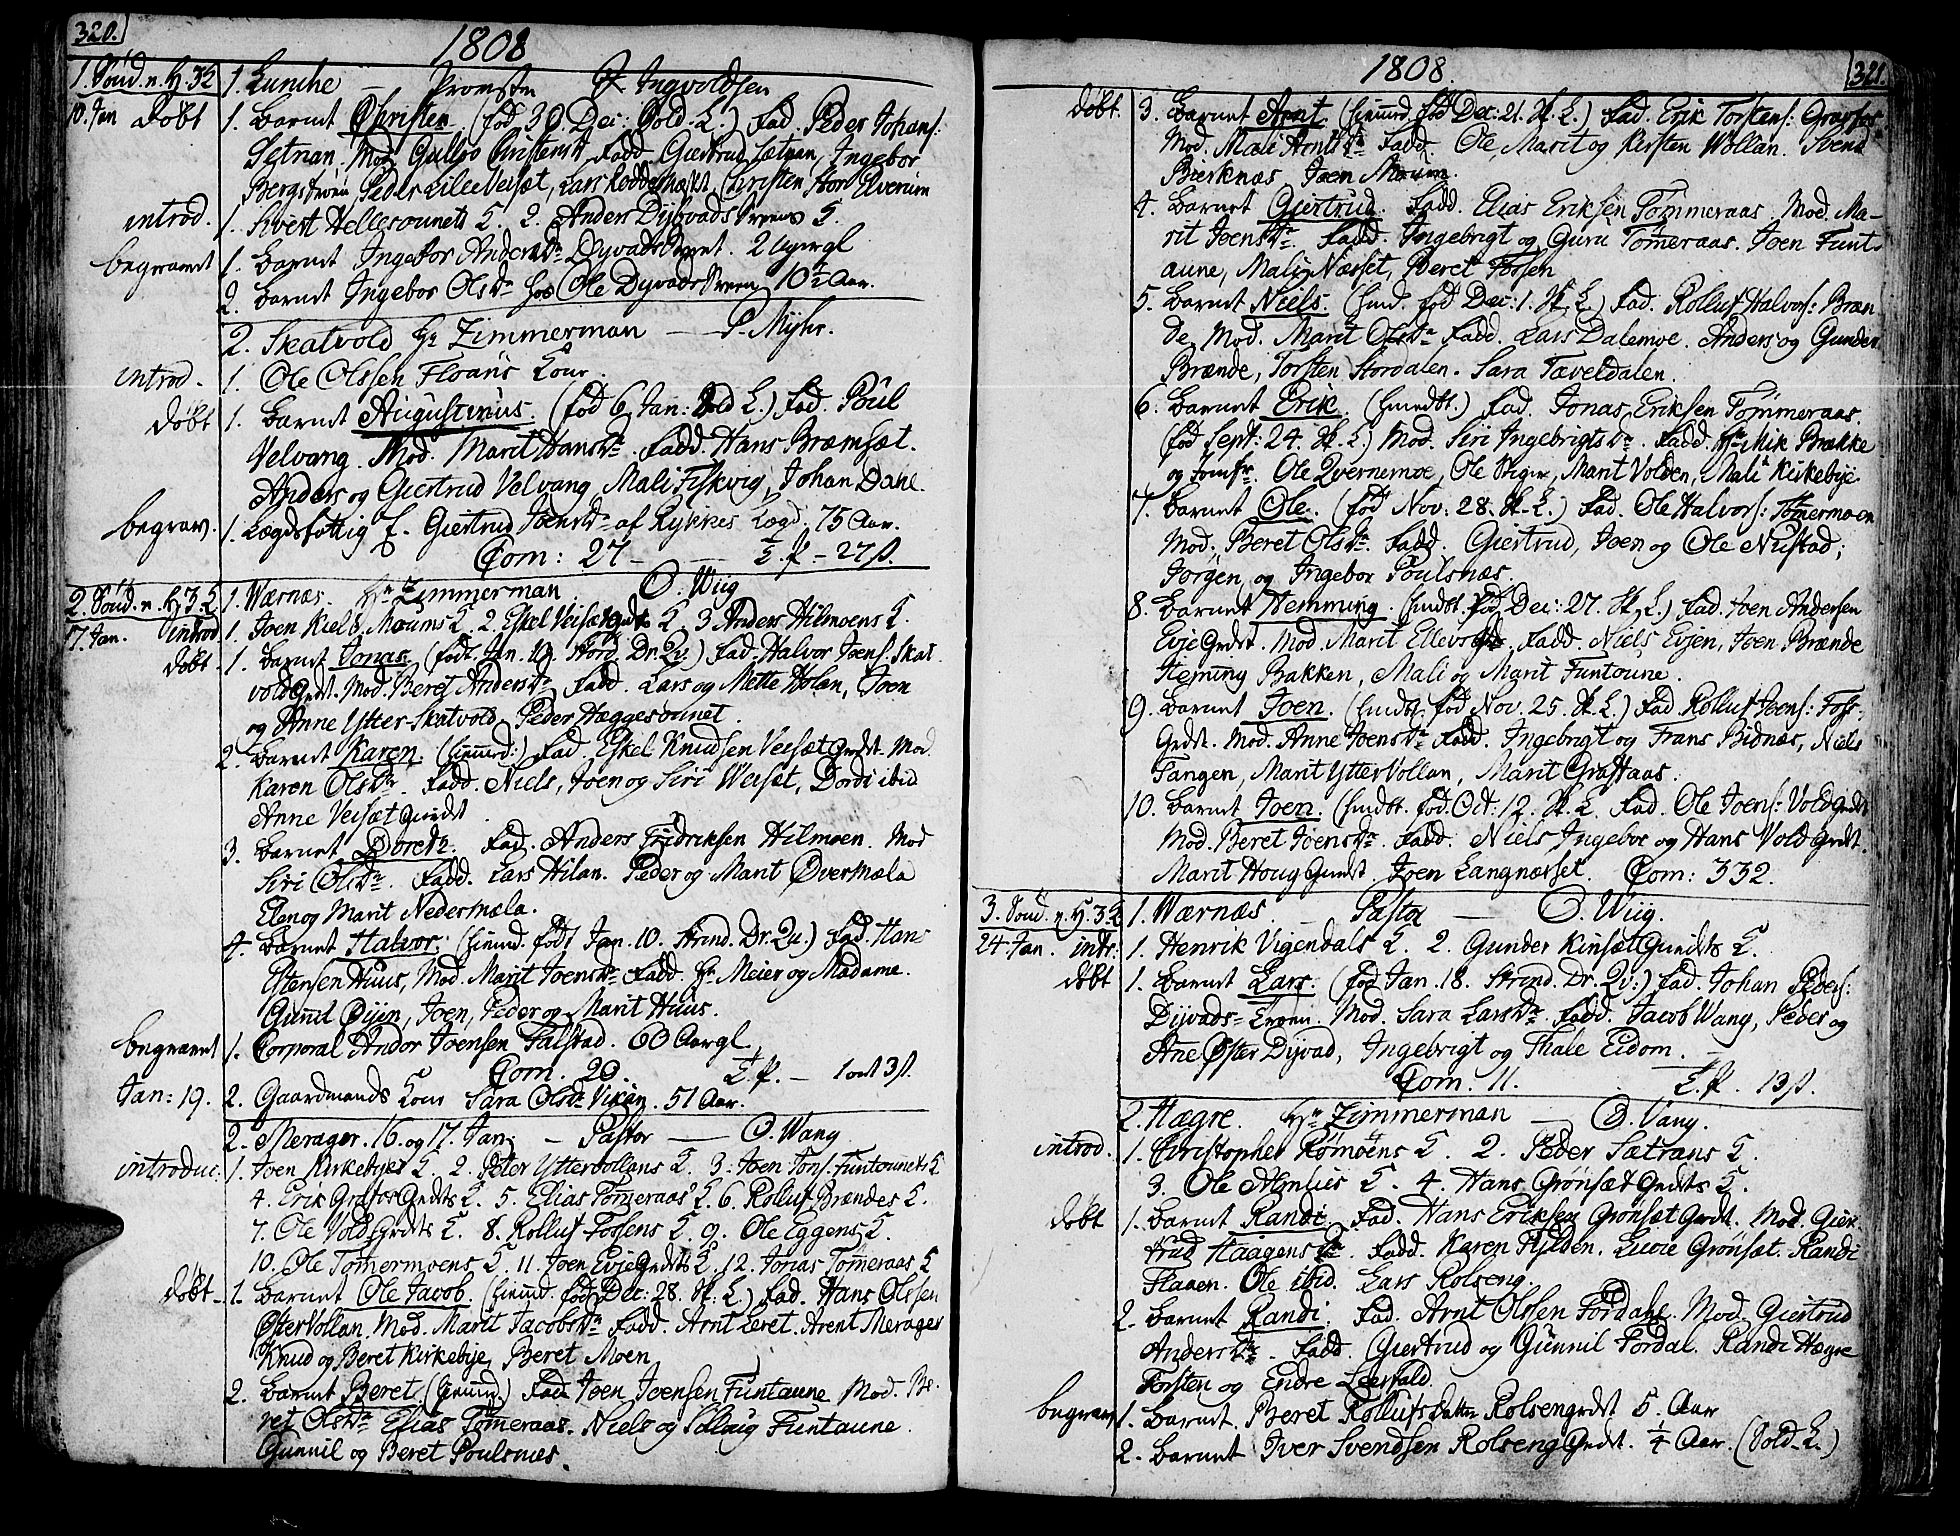 320.
1808
1. Sönd. n. H 3 K
1. Lunche — Promsten P. Ingvoldsen
10. Jan Døbt
1. Barnet Christen (fød 30 Dec: Sold-L.) Fad. Peder Johans:
Setnan. Mod. Fadd. Giertrud Sætnan, Ingebor
Peder Lille Veisæt, Lars Christen
introd.
1. Sivert Hellesounets K. 2. Anders Dyvads K.
begravet
1. Barnet Ingebor Anders Dr. 2 Uger gl
2. Barnet Ingebor Olsdr hos Ole 10½ Aar.
2. Skatvold Hr Zimmerman — P. Myhr.
introd.
1. Ole Olssen Floans Kone.
døbt
1. Barnet Augustinus. (fød 6 Jan: Sold L.) Fad. Poul
Velvang. Mod. Marit Hansdr. Fadd. Hans Bræmset.
Anders og Giertrud Velvang Mali Fiskvig, Johan Dahl.
begrav.
1. Lægdsfattig f. Giertrud Joensdr af Rykkes Lægd. 75 Aar.
Com: 27 — T. P. — 27 ß.
2. Sönd. n. H 3 K
1. Wærnæs. Hr Zimmerman O. Wiig
17. Jan. introd
1. Joen Kiels. Moums K 2. Eskel Veisætgrdts K. 3 Anders Hilmoens K
døbt.
1. Barnet Jonas. (født Jan. 10. Nord. Dr. 2u.) Fad. Halvor Joens. Skat
voldgrdt. Mod. Beret Andersdr Fadd. Lars og Mette Holan, Joen
og Anne Ytter-Skatvold Peder Hæggesounet.
2. Barnet Karen. Fad. Eskel Knudsen Veisætgrdt. Mod.
Karen Olsdr. Fadd. Niels, Joen og Siri Veisæt, Dordi ibid
Anne Veisætgrdt.
3. Barnet Doret. Fad. Anders Fridriksen Hilmoen. Mod
Siri Olsdr. Fadd. Lars Hilan. Peder og Marit Øvermæla
Elen og Marit Nedermæla.
4. Barnet Halvor. født Jan. 10. Strind. Dr. 2u.) Fad. Hans
Estensen Huus, Mod. Marit Joensdr. Fadd. Hr Meier og Madame.
Gunnil Øyen, Joen, Peder og Marit Huus.
begravet
1. Corporal Andor Joensen Falstad. 60 Aar gl
Com. 20. T. P. — 1 ort 3 ß.
Jan: 19.
2. Gaardmands Kone Sara Olsdr Vikan. 51 Aar.
2. Merager. 16. og 17. Jan. — Pastor — O. Wang
introduc.
1. Joen Kirkebyes K. 2. Peter Yttervollans K. 3: Joen Jons. Funtounets K
4. Erik Grafos Grdts K. 5. Elias Tømeraas K. 6. Rolluf Brændes K.
7. Ole Vold Grdts K. 8. Rolluf Fossens K. 9. Ole Eggens K.
10. Ole Tømermoens K. 11. Joen Evje Grdts K. 12. Jonas Tømeraas K
døbt.
1. Barnet Ole Jacob. fød Dec: 28. St. L.) Fad. Hans Olssen
Østervollan. Mod. Marit Jacobsdr Fadd. Arnt Leret. Arent Merager
Knud og Beret Kirkebye, Beret Moen
2. Barnet Beret Fad. Joen Joensen Funtaune Mod. Be-
ret Olsdr Elias Tømeraas. Niels og Solvig Funtaune.
Gunnil og Beret Poulsnes.
321.
1808.
døbt.
3. Barnet Arnt fød Dec: 21. St. L.) Fad. Erik Torstens: Grafos.
Mod. Mali Arntsdr Fadd. Ole, Marit og Kirsten Vollan. Svend
Bierknæs Joen Moum.
4. Barnet Giertrud. Fad. Elias Eriksen Tømmeraas. Mod. Ma-
rit Joensdr. Fadd. Ingebrigt og Guru Tømeraas. Joen Funt-
aune, Mali Næsset, Beret Fossen
5. Barnet Niels. fød Dec: 1. St. L) Fad. Rolluf Halvors: Bræn
de, Mod. Marit Olsdr. Fadd. Lars Dalemoe. Anders og Gunder
Brænde, Torsten Stordalen. Sara Tæveldalen.
6. Barnet Erik. Fad. Jonas Eriksen Tømmeraas.
(fød Sept: 24. St. L) Mod. Siri Ingebrigtsdr. Fadd. Hr Mik Brække
og Jomfr. Ole Qvernemoe, Ole Marit Volden, Mali Kirkebye.
7. Barnet Ole. (fød Nov: 28. St. L.) Fad. Ole Halvors: Tømermoen
Mod. Beret Olsdr. Fadd. Giertrud, Joen og Ole Nustad;
Jørgen og Ingebor Poulsnæs.
8. Barnet Hemming. fød Dec: 27. St. L.) Fad. Joen Andersen
Evje Grdt. Mod. Marit Ellevsdr. Fadd. Niels Evjen, Joen Brænde
Hemming Bakken, Mali og Marit Funtoune.
9. Barnet Joen. fød Nov. 25. St. L.) Fad. Rolluf Joens: Foss-
Grdt. Mod. Anne Joensdr. Fadd. Ingebrigt og Frans Bidnæs, Niels
Tangen, Marit Yttervollan, Marit Græsaas.
10. Barnet Joen. fød Oct: 12. St. L. Fad. Ole Joens: Vold Grdt
Mod. Beret Joensdr. Fadd. Niels Ingebor og Hans Vold Grdt.
Marit Houg Grdt. Joen Langnæsset. Com: 332.
3. Sönd. n. H. 3 K
1. Wærnæs. — Pastor — O. Wiig.
24 Jan. intr:
1. Henrik Vigendals K. 2. Gunder Kinsæt Grdts K.
døbt
1. Barnet Lars. (fød Jan. 18. Strind. Dr. 2u:) Fad. Johan Peders:
Dyvads-Eroen. Mod. Sara Larsdr. Fadd. Jacob Wang, Peder og
Ane Øster Dyvad, Ingebrigt og Thale Eidom.
Com. 11. T. P. 19 ß.
2. Hægre. Hr Zimmerman — O. Vang.
introd.
1. Christopher Rømoens K. 2. Peder Sætrans K.
3. Ole K. 4. Hans Grønsæt Grdts K.
døbt
1. Barnet Randi. Fad. Hans Eriksen Grønsæt Grdt. Mod. Gier-
trud Haagensdr. Fadd. Karen Fylden. Lucie Grønsæt. Randi
Flaaen. Ole ibid. Lars Rolseng.
2. Barnet Randi. Fad. Arnt Olssen Fordahl. Mod. Giertrud
Andersdr. Fadd. Giertrud og Gunnil Fordal. Randi Hægre
Torsten og Endre Leervald.
begravet
1. Barnet Beret Rollufsdatter Rolsengrdt 5. Aar
2. Barnet Iver Svendsen Rolseng Grdt. ¼ Aar. (Sold. L.)